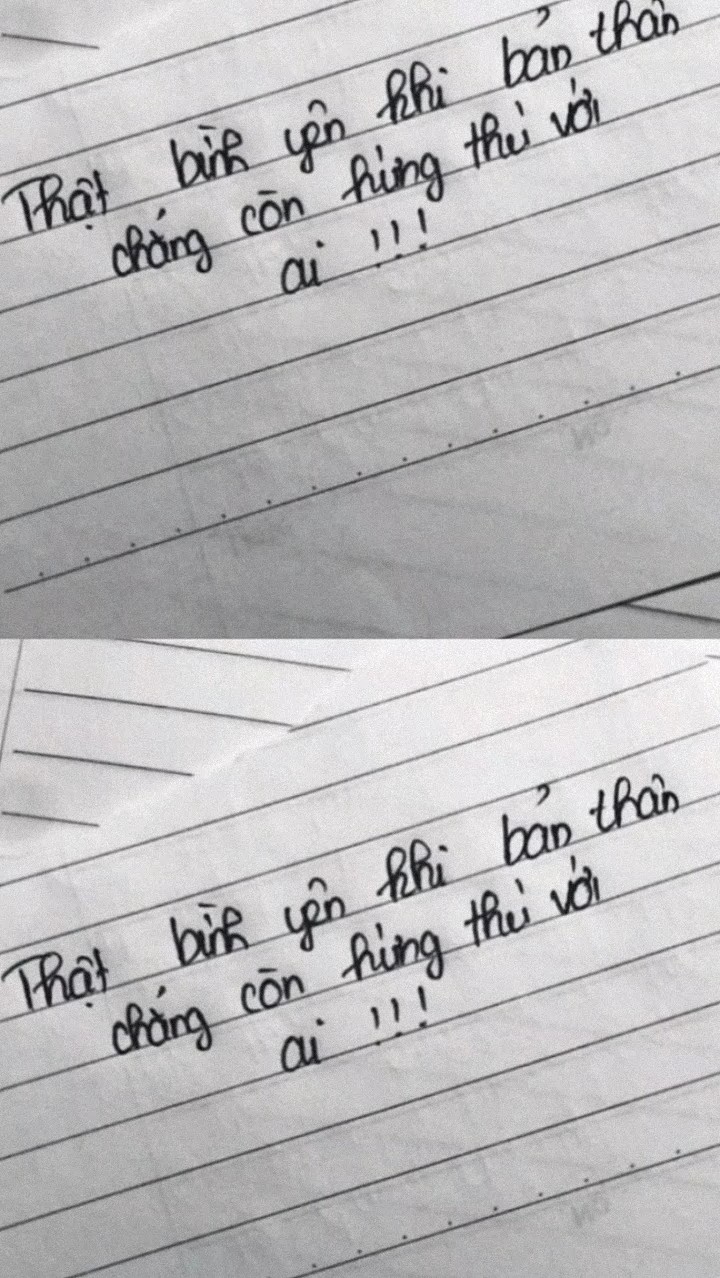 Thật bình yên khi bản thân
chẳng còn hứng thú với
ai !!!
Thật bình yên khi bản thân
chẳng còn hứng thú với
ai !!!